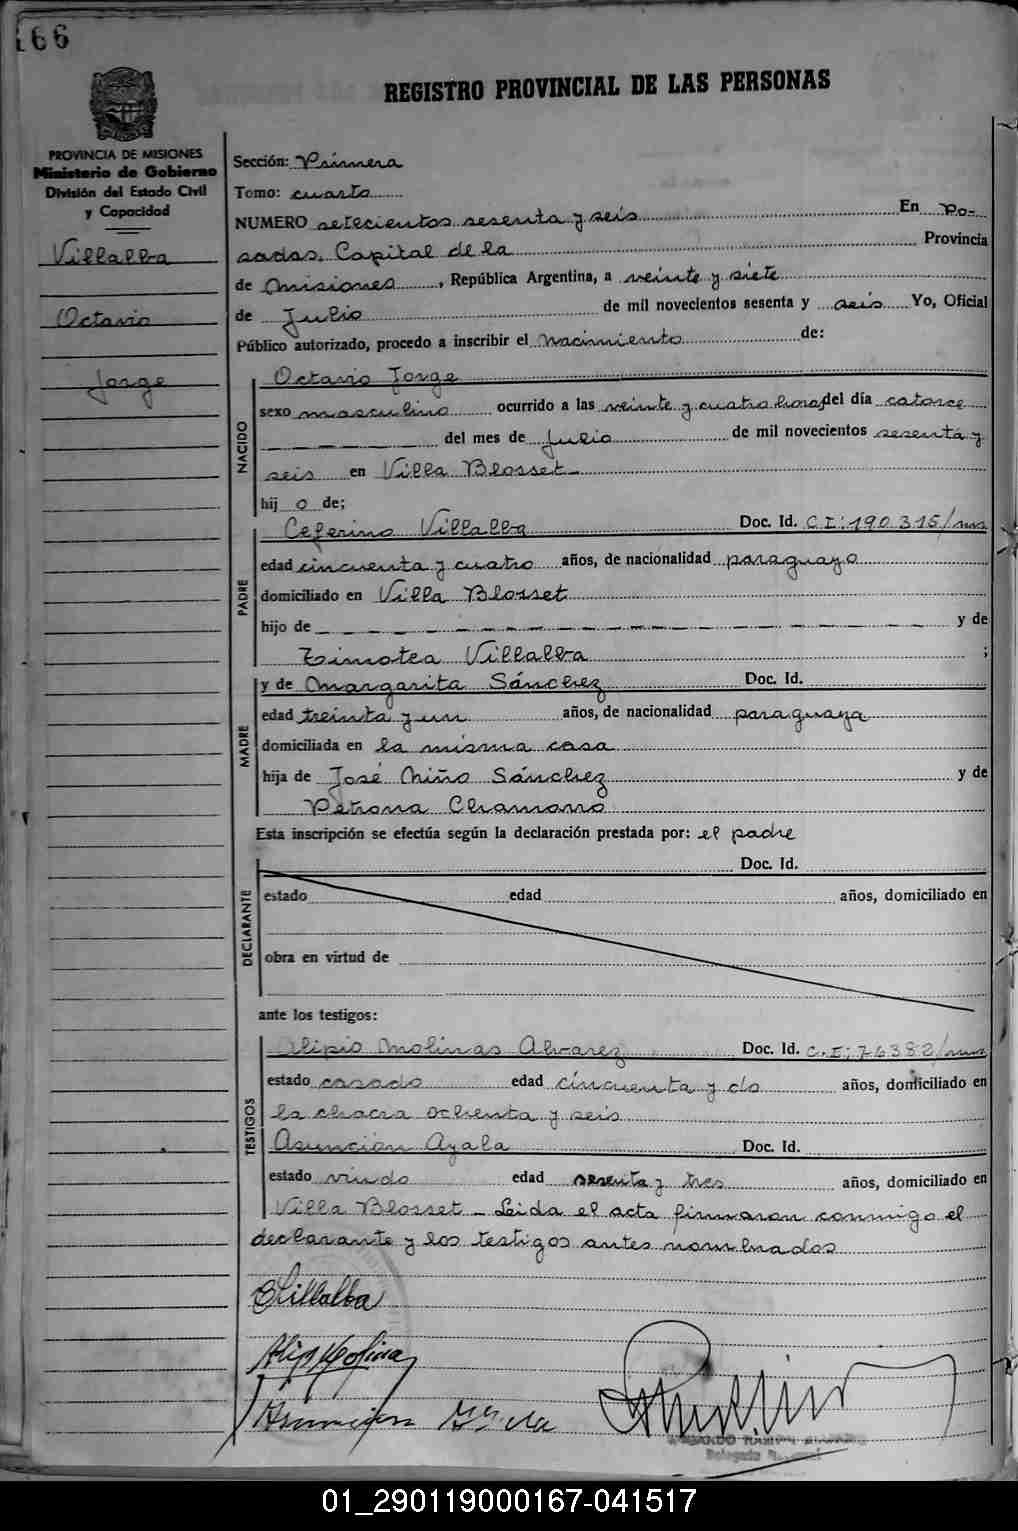 166
REGISTRO PROVINCIAL DE LAS PERSONAS
PROVINCIA DE MISIONES
Ministerio de Gobierno
División del Estado Civil
y Capacidad
Villalba
Octavio
Jorge
Sección: Primera
Tomo: cuarto
NUMERO setecientos sesenta y seis En Po-
sadas, Capital de la Provincia
de Misiones, República Argentina, a veinte y siete
de Julio de mil novecientos sesenta y seis Yo, Oficial
Público autorizado, procedo a inscribir el Nacimiento de:
NACIDO
Octavio Jorge
sexo masculino ocurrido a las veinte y cuatro horas del día catorce
del mes de Julio de mil novecientos sesenta y
seis en Villa Blosset
hij o de;
PADRE
Ceferino Villalba Doc. Id. C I: 190.315/mns
edad cincuenta y cuatro años, de nacionalidad paraguayo
domiciliado en Villa Blosset
hijo de y de
Timotea Villalba ;
MADRE
y de Margarita Sánchez Doc. Id.
edad treinta y un años, de nacionalidad paraguaya
domiciliada en la misma casa
hija de José Niño Sánchez y de
Petrona Chamorro
Esta inscripción se efectúa según la declaración prestada por: el padre
DECLARANTE
Doc. Id.
estado edad años, domiciliado en
obra en virtud de
ante los testigos:
TESTIGOS
Alipio Molinas Alvarez Doc. Id. C.I: 76382/mns
estado casado edad cincuenta y do años, domiciliado en
la chacra ochenta y seis
Asunción Ayala Doc. Id.
estado viudo edad sesenta y tres años, domiciliado en
Villa Blosset - Leida el acta firmaron conmigo el
declarante y los testigos antes nombrados
CVillalba
Alip Molina
Asuncion
01_290119000167-041517